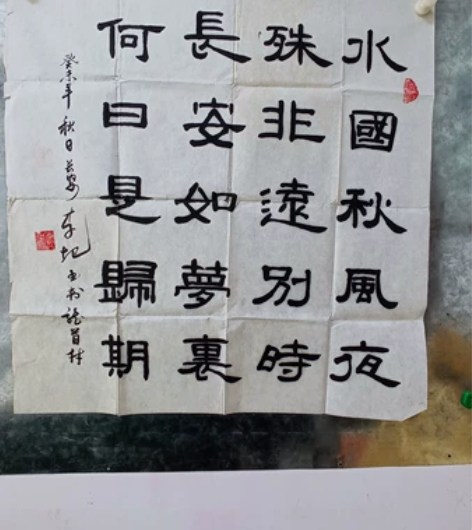 水國秋風夜
殊非遠別時
長安如夢裏
何日是歸期
癸未年秋日长安书龍首村